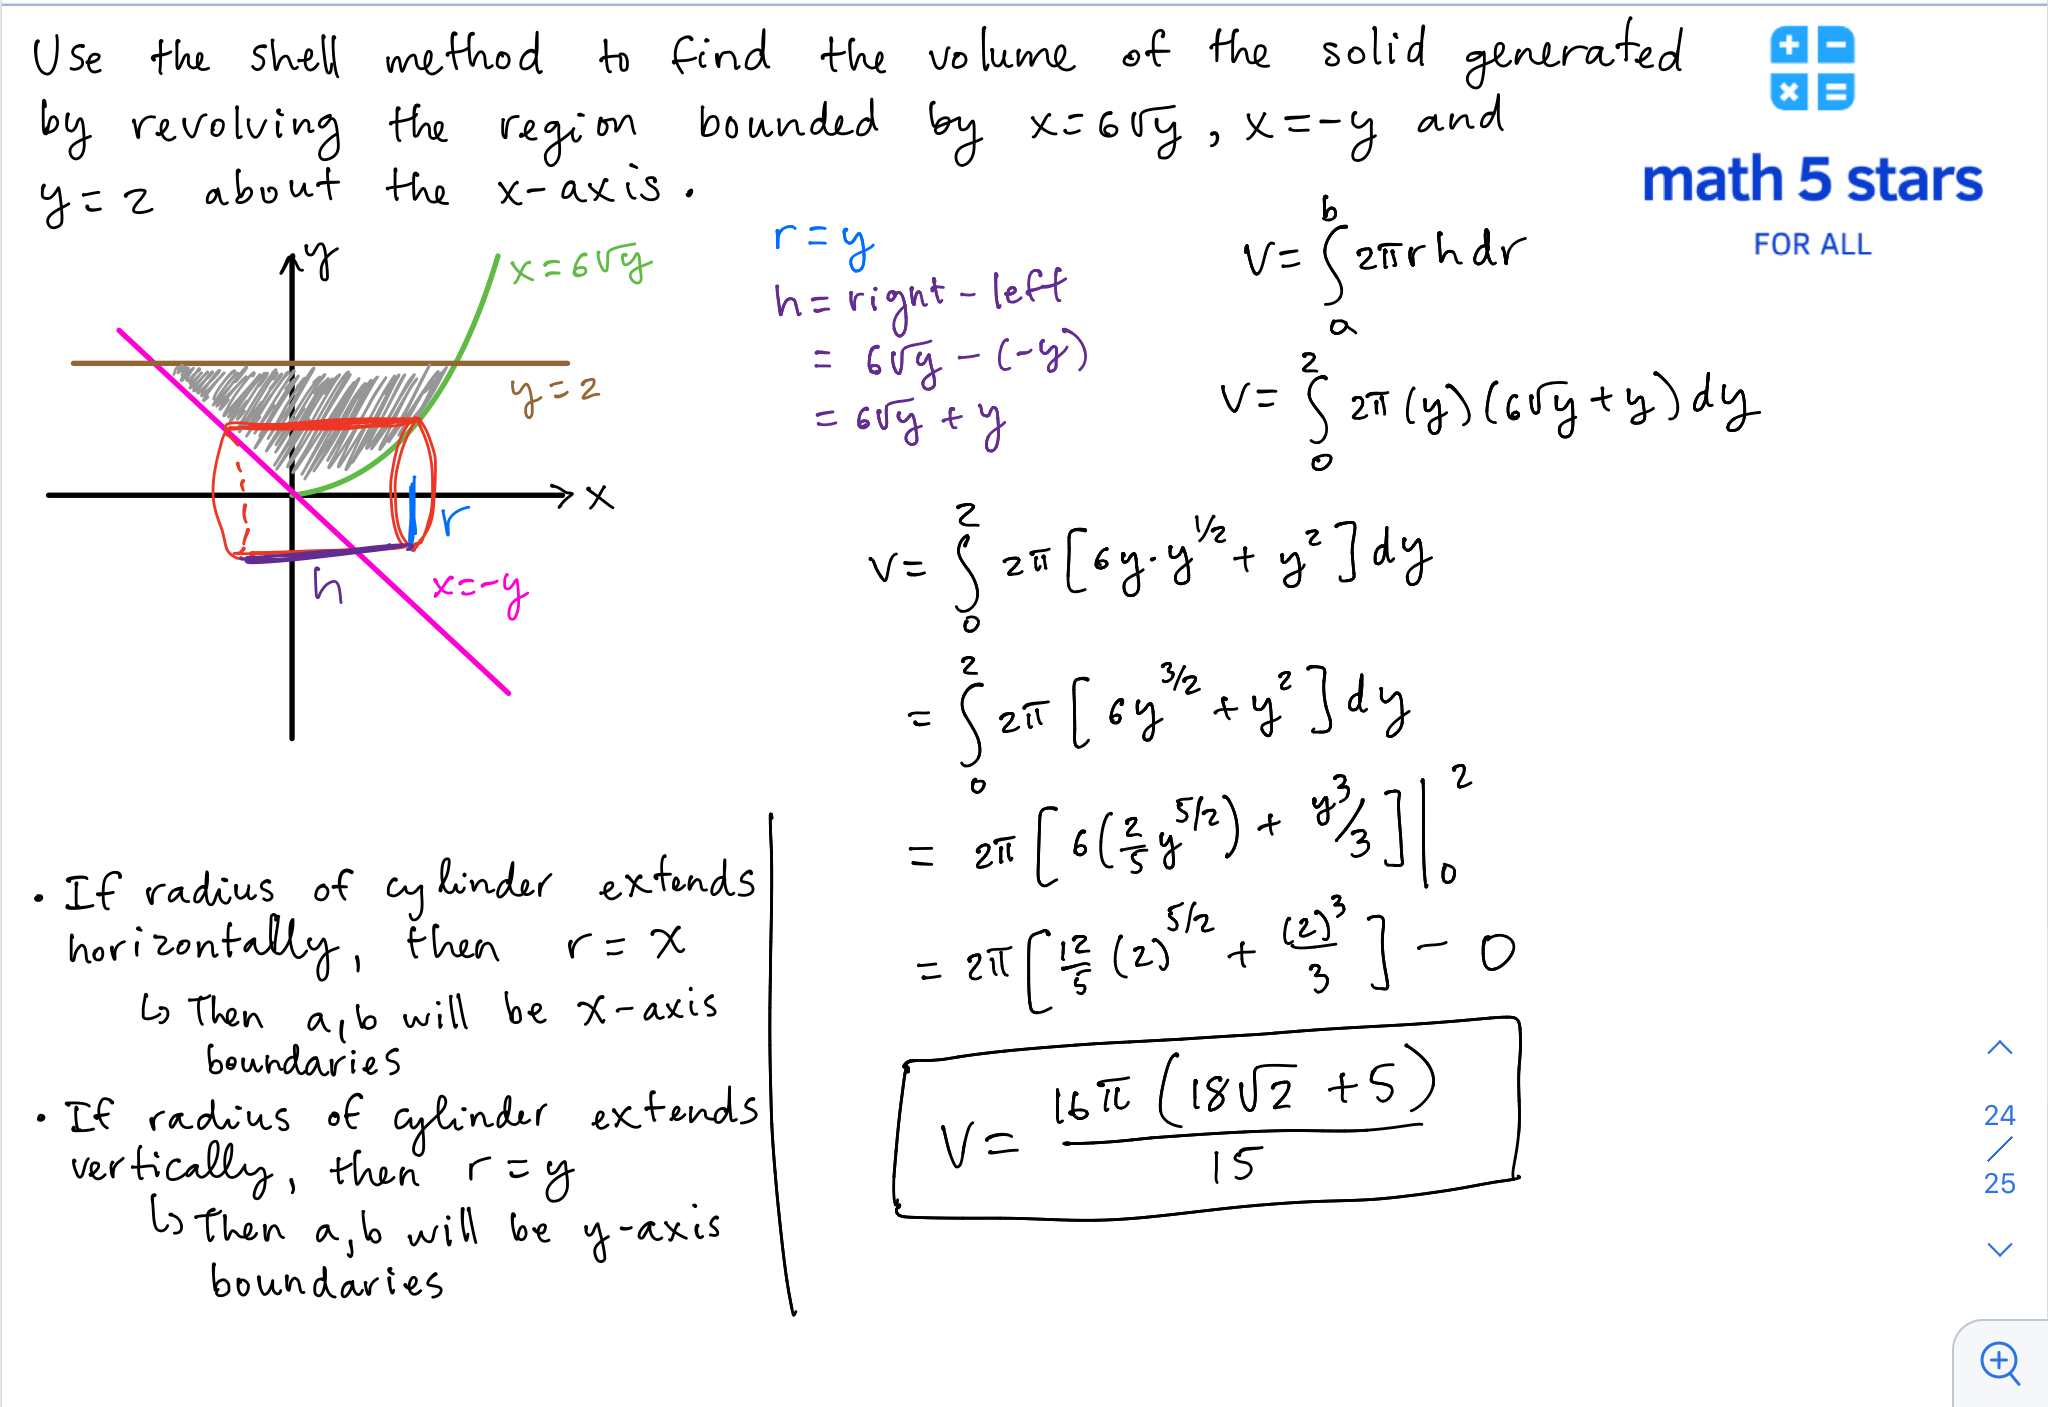 Use the shell method to find the volume of the solid generated
by revolving the region bounded by x=6√y, x=-y and
y=2 about the x-axis.
+ −
× =
math 5 stars
FOR ALL
y
x=6√y
y=2
x
r
h
x=-y
r=y
h=right-left
= 6√y-(-y)
= 6√y+y
V= ∫_a^b 2πrhdr
V= ∫_0^2 2π(y)(6√y+y)dy
V= ∫_0^2 2π[6y·y^{1/2}+y^2]dy
= ∫_0^2 2π[6y^{3/2}+y^2]dy
= 2π[6(2/5 y^{5/2})+y^3/3]|_0^2
= 2π[12/5 (2)^{5/2}+(2)^3/3]-0
V= 16π(18√2+5)/15
• If radius of cylinder extends
horizontally, then r=x
↳ Then a,b will be x-axis
boundaries
• If radius of cylinder extends
vertically, then r=y
↳ Then a,b will be y-axis
boundaries
24
/
25